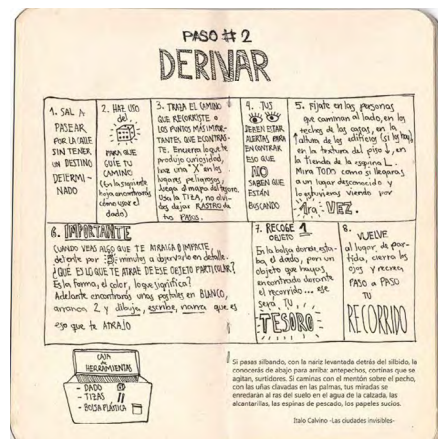 PASO # 2
DERIVAR
1. SAL A
PASEAR
POR LA CALLE
SIN TENER
UN DESTINO
DETERMI-
NADO
2. HAZ USO
del
PARA QUE
GUÍE TU
CAMINO
(En la siguiente
hoja encontrarás
cómo usar el
dado)
3. TRAZA EL CAMINO
QUE RECORRISTE o
LOS PUNTOS MÁS IMPOR-
TANTES QUE ECONTRAS-
TE. Encierra lo que te
produjo curiosidad,
haz una "X" en los
lugares peligrosos,
Juega a mapa del tesoro.
Usa la TIZA, no olvi-
des dejar RASTRO de
tus PASOS.
4. TUS
DEBEN ESTAR
ALERTAS PARA
ENCONTRAR
ESO QUE
NO
SABEN QUE
ESTÁN
BUSCANDO
5. Fíjate en las personas
que caminan al lado, en los
techos de las casas, en la
altura de los edificios (si los hay)
en la textura del piso, en
la tienda de la esquina.
Mira TODO como si llegaras
a un lugar desconocido y
lo estuvieras viendo por
1ra VEZ.
6. IMPORTANTE
CUANDO VEAS ALGO QUE TE ATRAIGA O IMPACTE
detente por minutos a observarlo en detalle.
¿QUÉ ES LO QUE TE ATRAE DE ESE OBJETO PARTICULAR?
Es la forma, el color, lo que significa?
Adelante encontrarás unas postales en BLANCO,
arranca 2 y dibuja, escribe, narra que es
eso que te ATRAJO
7. RECOGE 1
OBJETO
En la bolsa donde esta-
ba el dado, pon un
objeto que hayas
encontrado durante
el recorrido... ese
será TU
TESORO
8. VUELVE
al lugar de par-
tida, cierra los
ojos y recrea
PASO a PASO
TU
RECORRIDO
CAJA
de
HERRAMIENTAS
- DADO
- TIZAS
- BOLSA PLÁSTICA
Si pasas silbando, con la nariz levantada detrás del silbido, la
conocerás de abajo para arriba: antepechos, cortinas que se
agitan, surtidores. Si caminas con el mentón sobre el pecho,
con las uñas clavadas en las palmas, tus miradas se
enredarán al ras del suelo en el agua de la calzada, las
alcantarillas, las espinas de pescado, los papeles sucios.
Italo Calvino -Las ciudades invisibles-